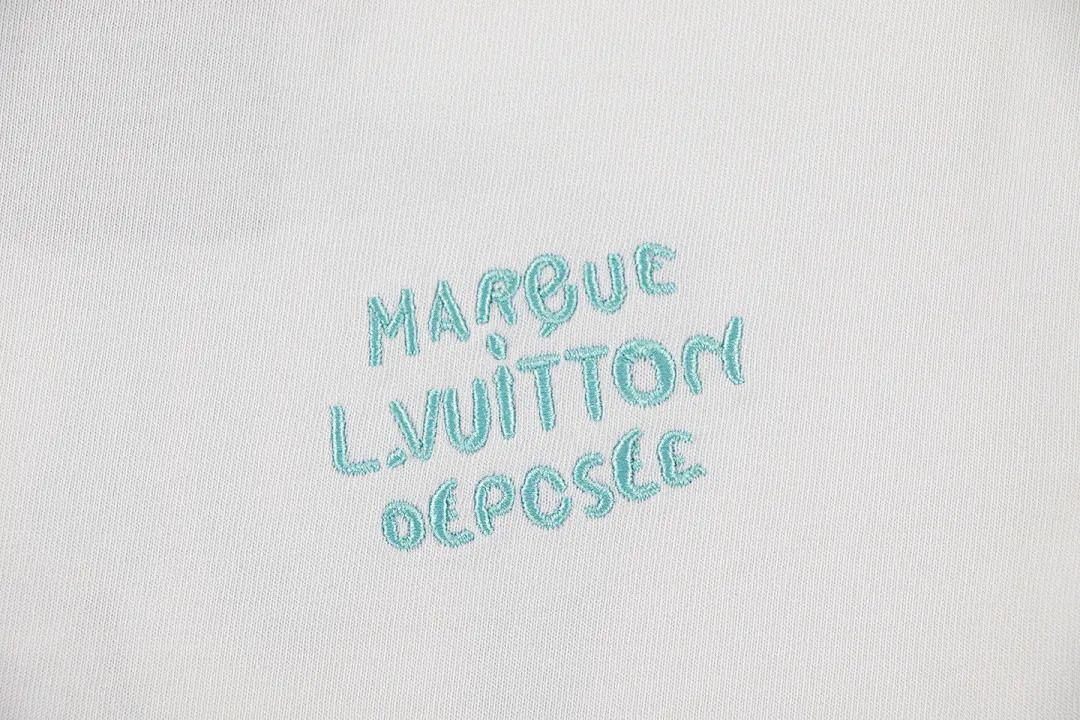 MARQUE
L.VUiTTON
DEPOSÉE